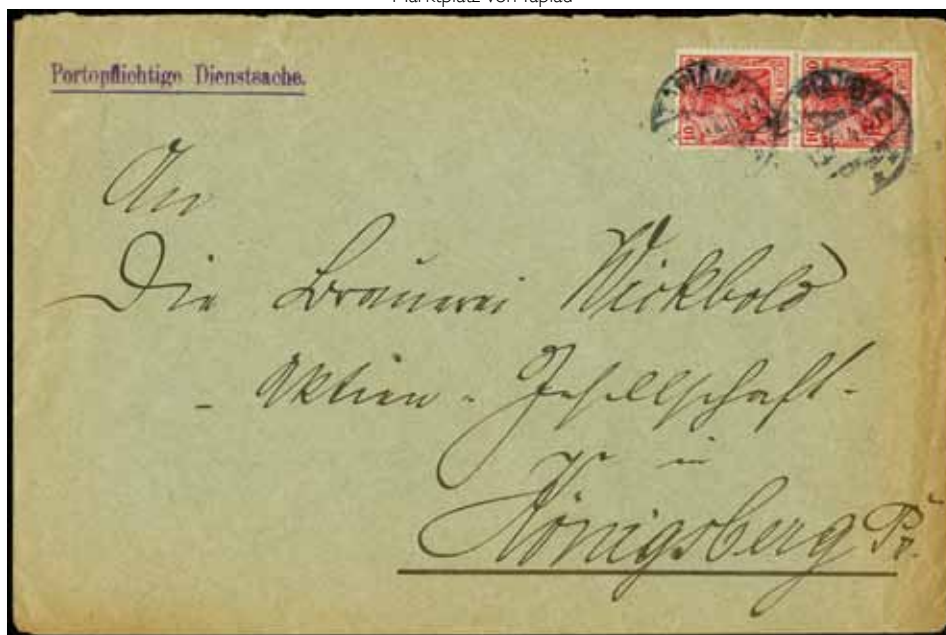 Marktplatz von Tapiau
Portopflichtige Dienstsache.
TAPIAU
10
10
An
Die Brauerei Wickbold
- Aktien - Gesellschaft -
in
Königsberg Pr.